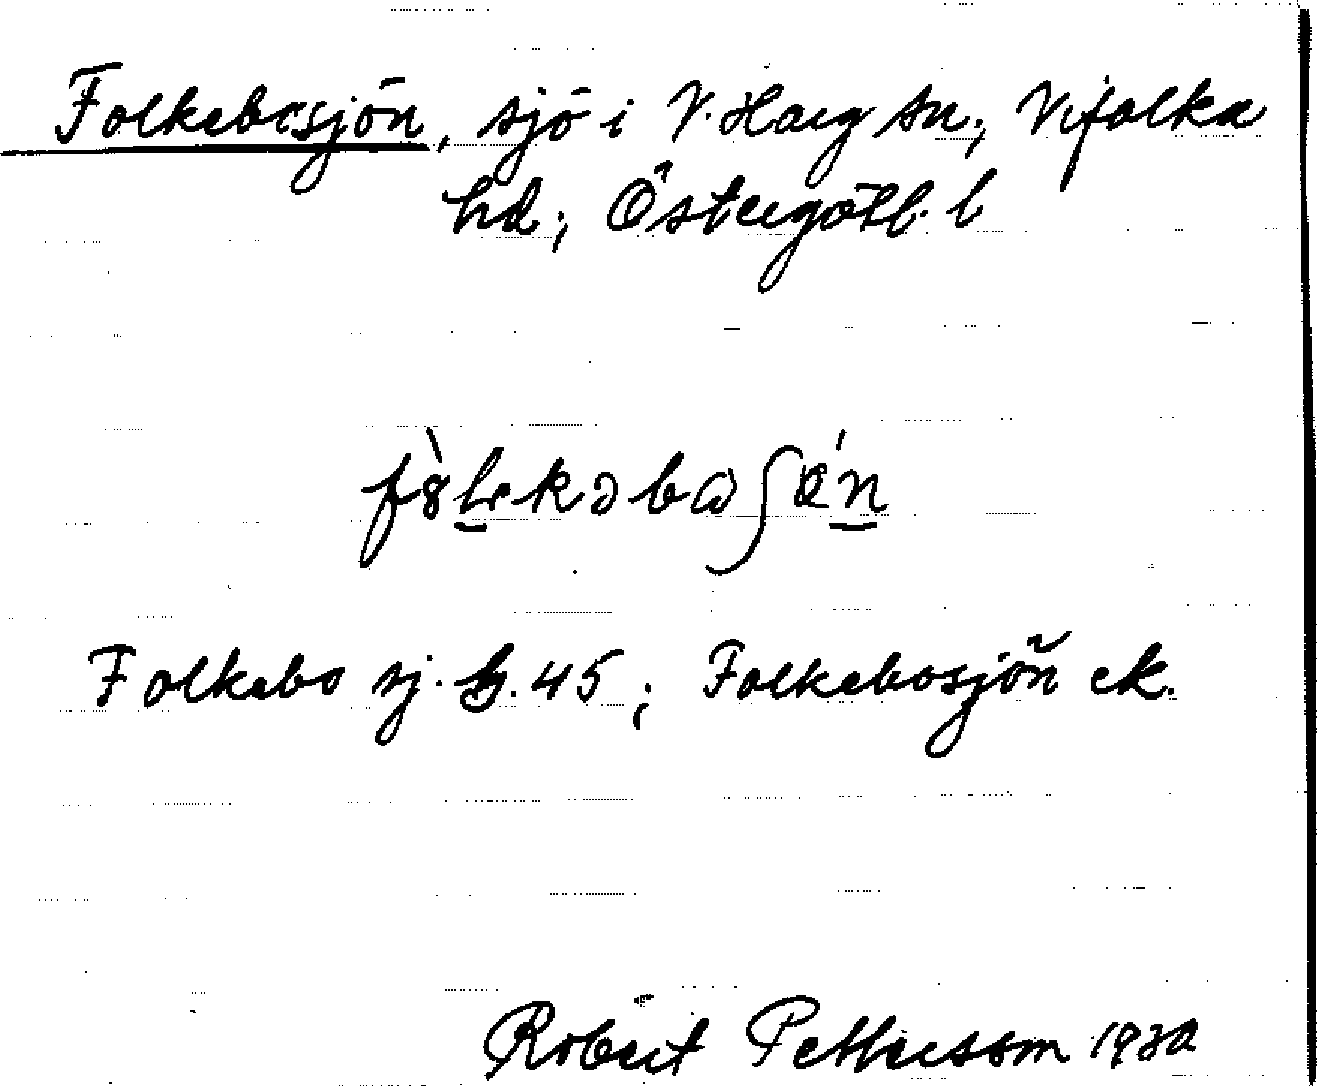 Folkebosjön, sjö i V. Harg sn; Vifolka
hd; Östergötl. l
Folkebo sj. G. 45; Folkebosjön ek.
Robert Pettersson 1930